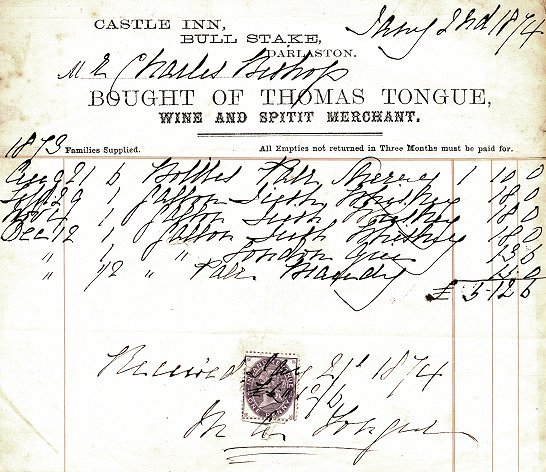 CASTLE INN,
BULL STAKE,
DARLASTON.
Jany 23rd 1874
Mr Charles Bishop
BOUGHT OF THOMAS TONGUE,
WINE AND SPITIT MERCHANT.
1873 Families Supplied. All Empties not returned in Three Months must be paid for.
Aug 21 6 Bottles Pale Sherry 1 10 0
Sept 29 1 Gallon Irish Whiskey 18 0
Nov 1 Gallon Irish Whiskey 18 0
Dec 12 1 Gallon Irish Whiskey 18 0
" 1 " London Gin 13 6
" 1/2 " Pale Brandy
£ 5-12 6
Received 1874
Tongue